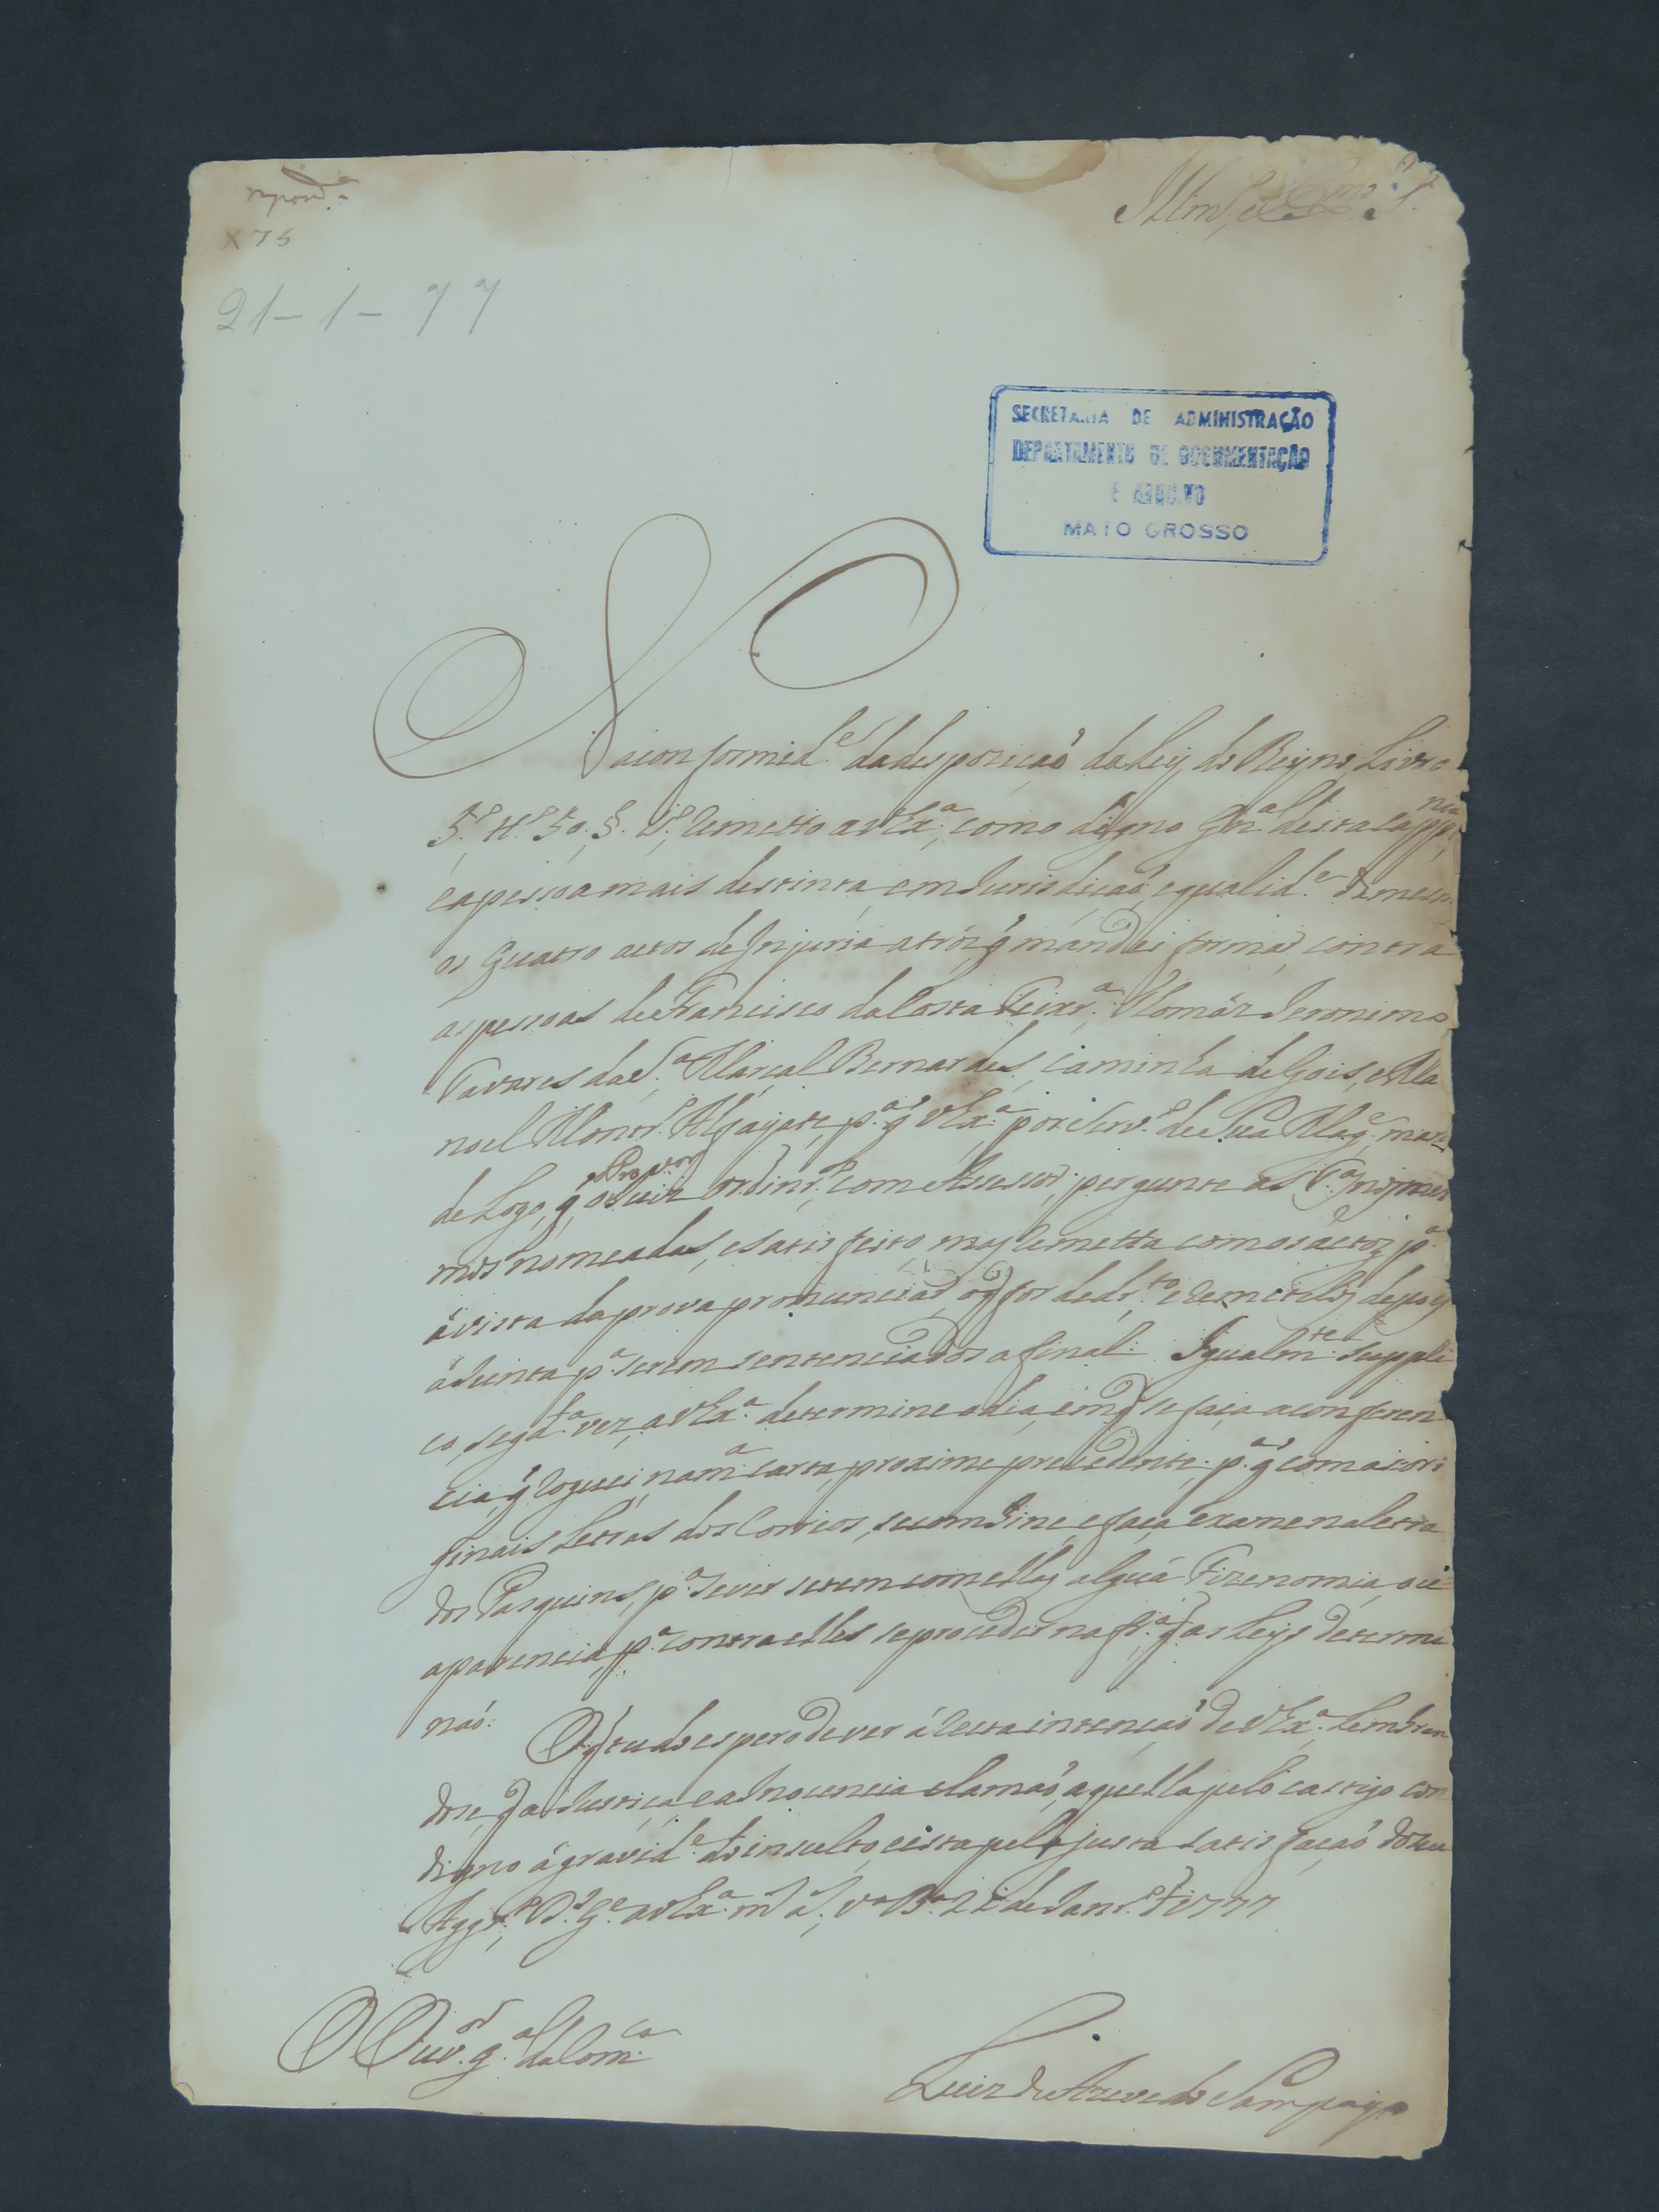 respond.ª
X 75
Illmo. e Exmo. Sr.
21-1-77
SECRETARIA DE ADMINISTRAÇÃO
DEPARTAMENTO DE DOCUMENTAÇÃO
E ARQUIVO
MATO GROSSO
Na conformid.e da despozicaõ da Ley do Reyno, Livro
5.º tt.º 50. §. Remetto a vEx.ª, como digno Gn.al desta cappnia
e a pessoa mais destinta em Jurisdicaõ, e qualid.e
os quatro autos de Injuria atróz q̃ mandei formar contra
as pessoas de Francisco da Costa Teixr.ª, Thomáz Jeronimo
Tavares da S.ª Marçal Bernardes, caminha de Gois, e Ma
noel p.ª q̃ vEx.ª por Serv.º de Sua Mag.e mande
de Logo, q̃ o Juiz Provor ordinr.º com Assessor pergunte as T.as
mos nomeadas, e satisfeito, mos Remetta com os autos p.ª
á vista da prova pronunciar o q̃ for de dr.to e Remetelos depois
á Junta p.ª serem sentenciados a final. Igualm.te suppli
co, segd.ª vez, a vEx.ª determine o dia, em q̃ se faça a conferen
cia, q̃ Roguei na m.ª carta proxime precedente, p.ª q̃ com as ori
ginais Letras dos Corrêos, se combine, e faça exame na letra
dos Pasquins, p.ª se ver se tem com elles alguá Fizenomia, ou
aparencia, p.ª contra elles se proceder na fr.ª q̃ as Leys determi
naõ.
O q̃ tudo espero dever á Recta intençaõ de vEx.ª Lembran
dose, q̃ a Justiça, e a Inocencia clamaõ, aquella pelo castigo con
digno á gravid.e do insulto, e esta pela justa satisfaçaõ do seu
Aggr.º D.s G.e a vEx.ª m.s a.s V.ª B.ª 21 de Janr.º de 1777
O Ouv.or g.al da Com.ca
Luiz de Azevedo Sampayo